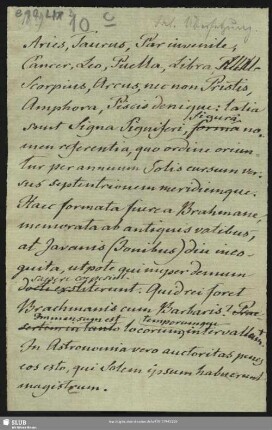 10 c
Lat. Übersetzung.
Aries, Taurus, Par invenile,
Cancer, Leo, Puella, Libra
Scorpius, Arcus, nec non Pristis,
Amphora, Piscis denique: talia
figurâ
sunt Signa Signiferi, forma no-
men referentia, quo ordine oriun-
tur per annuum Solis cursum ver-
sus septentrionem meridiemque.
Haec formata fuere a Brahmane,
memorata ab antiquis vatibus,
at Javanis (Ionibus) diu inco-
gnita, utpote qui nuper demum
sapere coeperint.
docti extiterunt. Quid rei foret
Brachmanis cum Barbaris?
Immensum est temporumque
tanto locorum intervallum,
In Astronomia vero auctoritas penes
eos esto, qui Solem ipsum habuerunt
magistrum.
SLUB